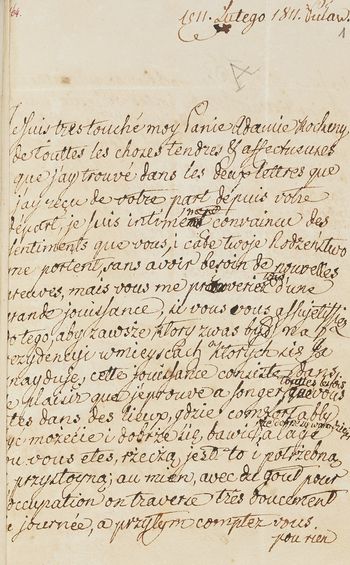 1811. Lutego 1811. Puław.
1
Je suis tres touché moy Panie Adamie Kochany
de touttes les choses tendres & affectueuses
que j'ay trouvé dans les deux lettres que
j'ay reçu de votre part depuis votre
depart, je suis intimement convaincu des
sentiments que vous, i całe twoje Rodzeństwo
me portent, sans avoir besoin de nouvelles
preuves, mais vous me procureriez d'une
grande jouissance, si vous vous assujetissiez
do tego, aby zawsze ktory z was był na
rezydencyi w mieyscach w ktorych się Ja
znayduję, cette jouissance consiste dans
le plaisir que j'eprouve a songer que vous
etes dans des lieux, gdzie comfortably
być możecie i dobrze się bawić, a l'age
ou vous etes, rzeczą jest to i potrzebną
i przystoyną, au mien, avec du gout pour
l'occupation on traverse très doucement
la journée, a przytym comptez vous
pou rien